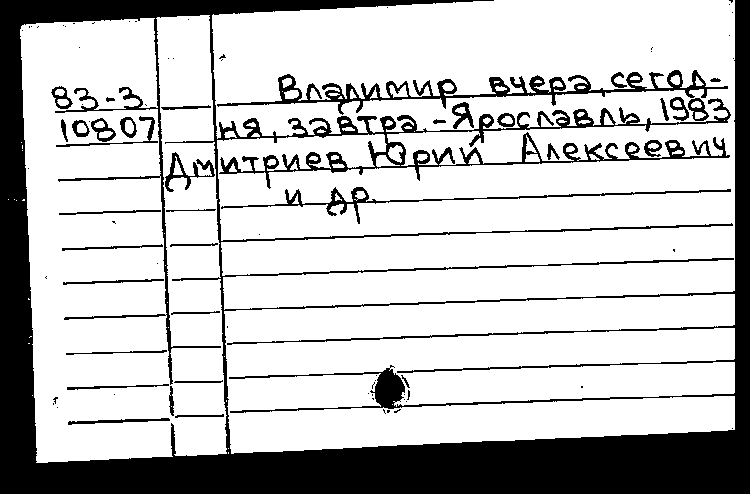 83-3 Владимир вчера, сегод-
10807 ня, завтра.-Ярославль, 1983
Дмитриев, Юрий Алексеевич
и др.